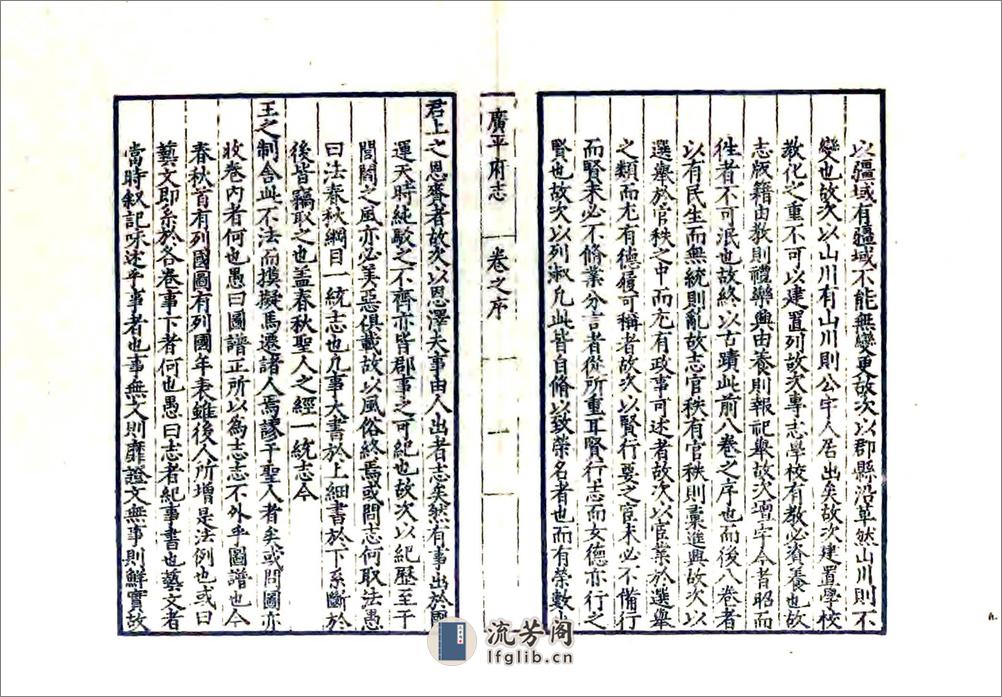 以疆域有疆域不能無變更故次以郡縣沿革然山川則不
變也故次以山川有山川則公宇人居出矣故次建置學校
教化之重不可以建置列故次專志學校有教必資養也故
志版籍由教則禮樂興由養則報祀舉故次壇宇今昔昭而
徃者不可泯也故終以古蹟此前八卷之序也而後八卷者
以有民生而無統則亂故志官秩有官秩則稟進興故次以
選舉於官秩之中而尤有政事可述者故次以宦業於選舉
之類而尤有德履可稱者故次以賢行要之宦未必不備行
而賢未必不脩業分言者從所重耳賢行志而女德亦行之
賢也故次以列淑凡此皆自脩以致榮名者也而有榮數
廣平府志
卷之序
一
君上之恩賚者故次以恩澤夫事由人出者志矣然有事出於
運天時純駁之不齊亦皆郡事之可紀也故次以紀歷至于
閭閻之風亦必美惡俱載故以風俗終焉或問志何取法愚
曰法春秋綱目一統志也凡事大書於上細書於下系斷於
後皆竊取之也盖春秋聖人之經一統志今
王之制舍此不法而摸擬馬遷諸人焉謬于聖人者矣或問圖亦
收卷內者何也愚曰圖譜正所以為志志不外乎圖譜也今
春秋首有列國圖有列國年表雖後人所增是法例也或曰
藝文即系於各卷事下者何也愚曰志者紀事書也藝文者
當時叙記咏述乎事者也事無文則靡證文無事則鮮實故
流芳阁
lfglib.cn